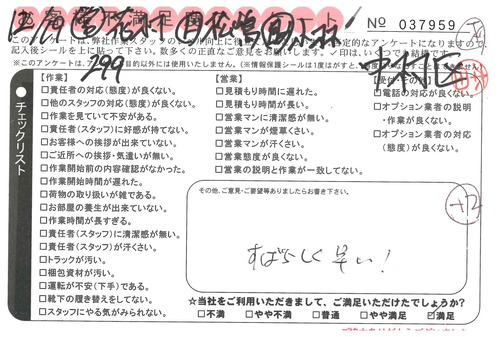 No 037959
このアンケートは、弊社作業スタッフの
定的なアンケートになりますので、
記入後シールを上に貼って下さい。
※このアンケートは、
目的以外には使用いたしません。
299
チェックリスト
【作業】
□責任者の対応(態度)が良くない。
□他のスタッフの対応(態度)が良くない。
□作業を見ていて不安がある。
□責任者(スタッフ)に好感が持てない。
□お客様への挨拶が出来ていない。
□ご近所への挨拶・気遣いが無い。
□作業開始前の内容確認がなかった。
□作業開始時間が遅れた。
□荷物の取り扱いが雑である。
□お部屋の養生が出来ていない。
□作業時間が長すぎる。
□責任者(スタッフ)に清潔感が無い。
□責任者(スタッフ)が汗くさい。
□トラックが汚い。
□梱包資材が汚い。
□運転が不安(下手)である。
□靴下の履き替えをしてない。
□スタッフにやる気がみられない。
【営業】
□見積もり時間に遅れた。
□見積もり時間が長い。
□営業マンに清潔感が無い。
□営業マンが煙草くさい。
□営業マンが汗くさい。
□営業態度が良くない。
□営業の説明と作業が一致してない。
□電話の対応が良くない。
□オプション業者の説明
・作業が良くない。
□オプション業者の対応
(態度)が良くない。
その他、ご意見・ご要望等ありましたらお書き下さい。
すばらしく早い!
☆当社をご利用いただきまして、ご満足いただけたでしょうか?
□不満 □やや不満 □普通 □やや満足 ☑満足